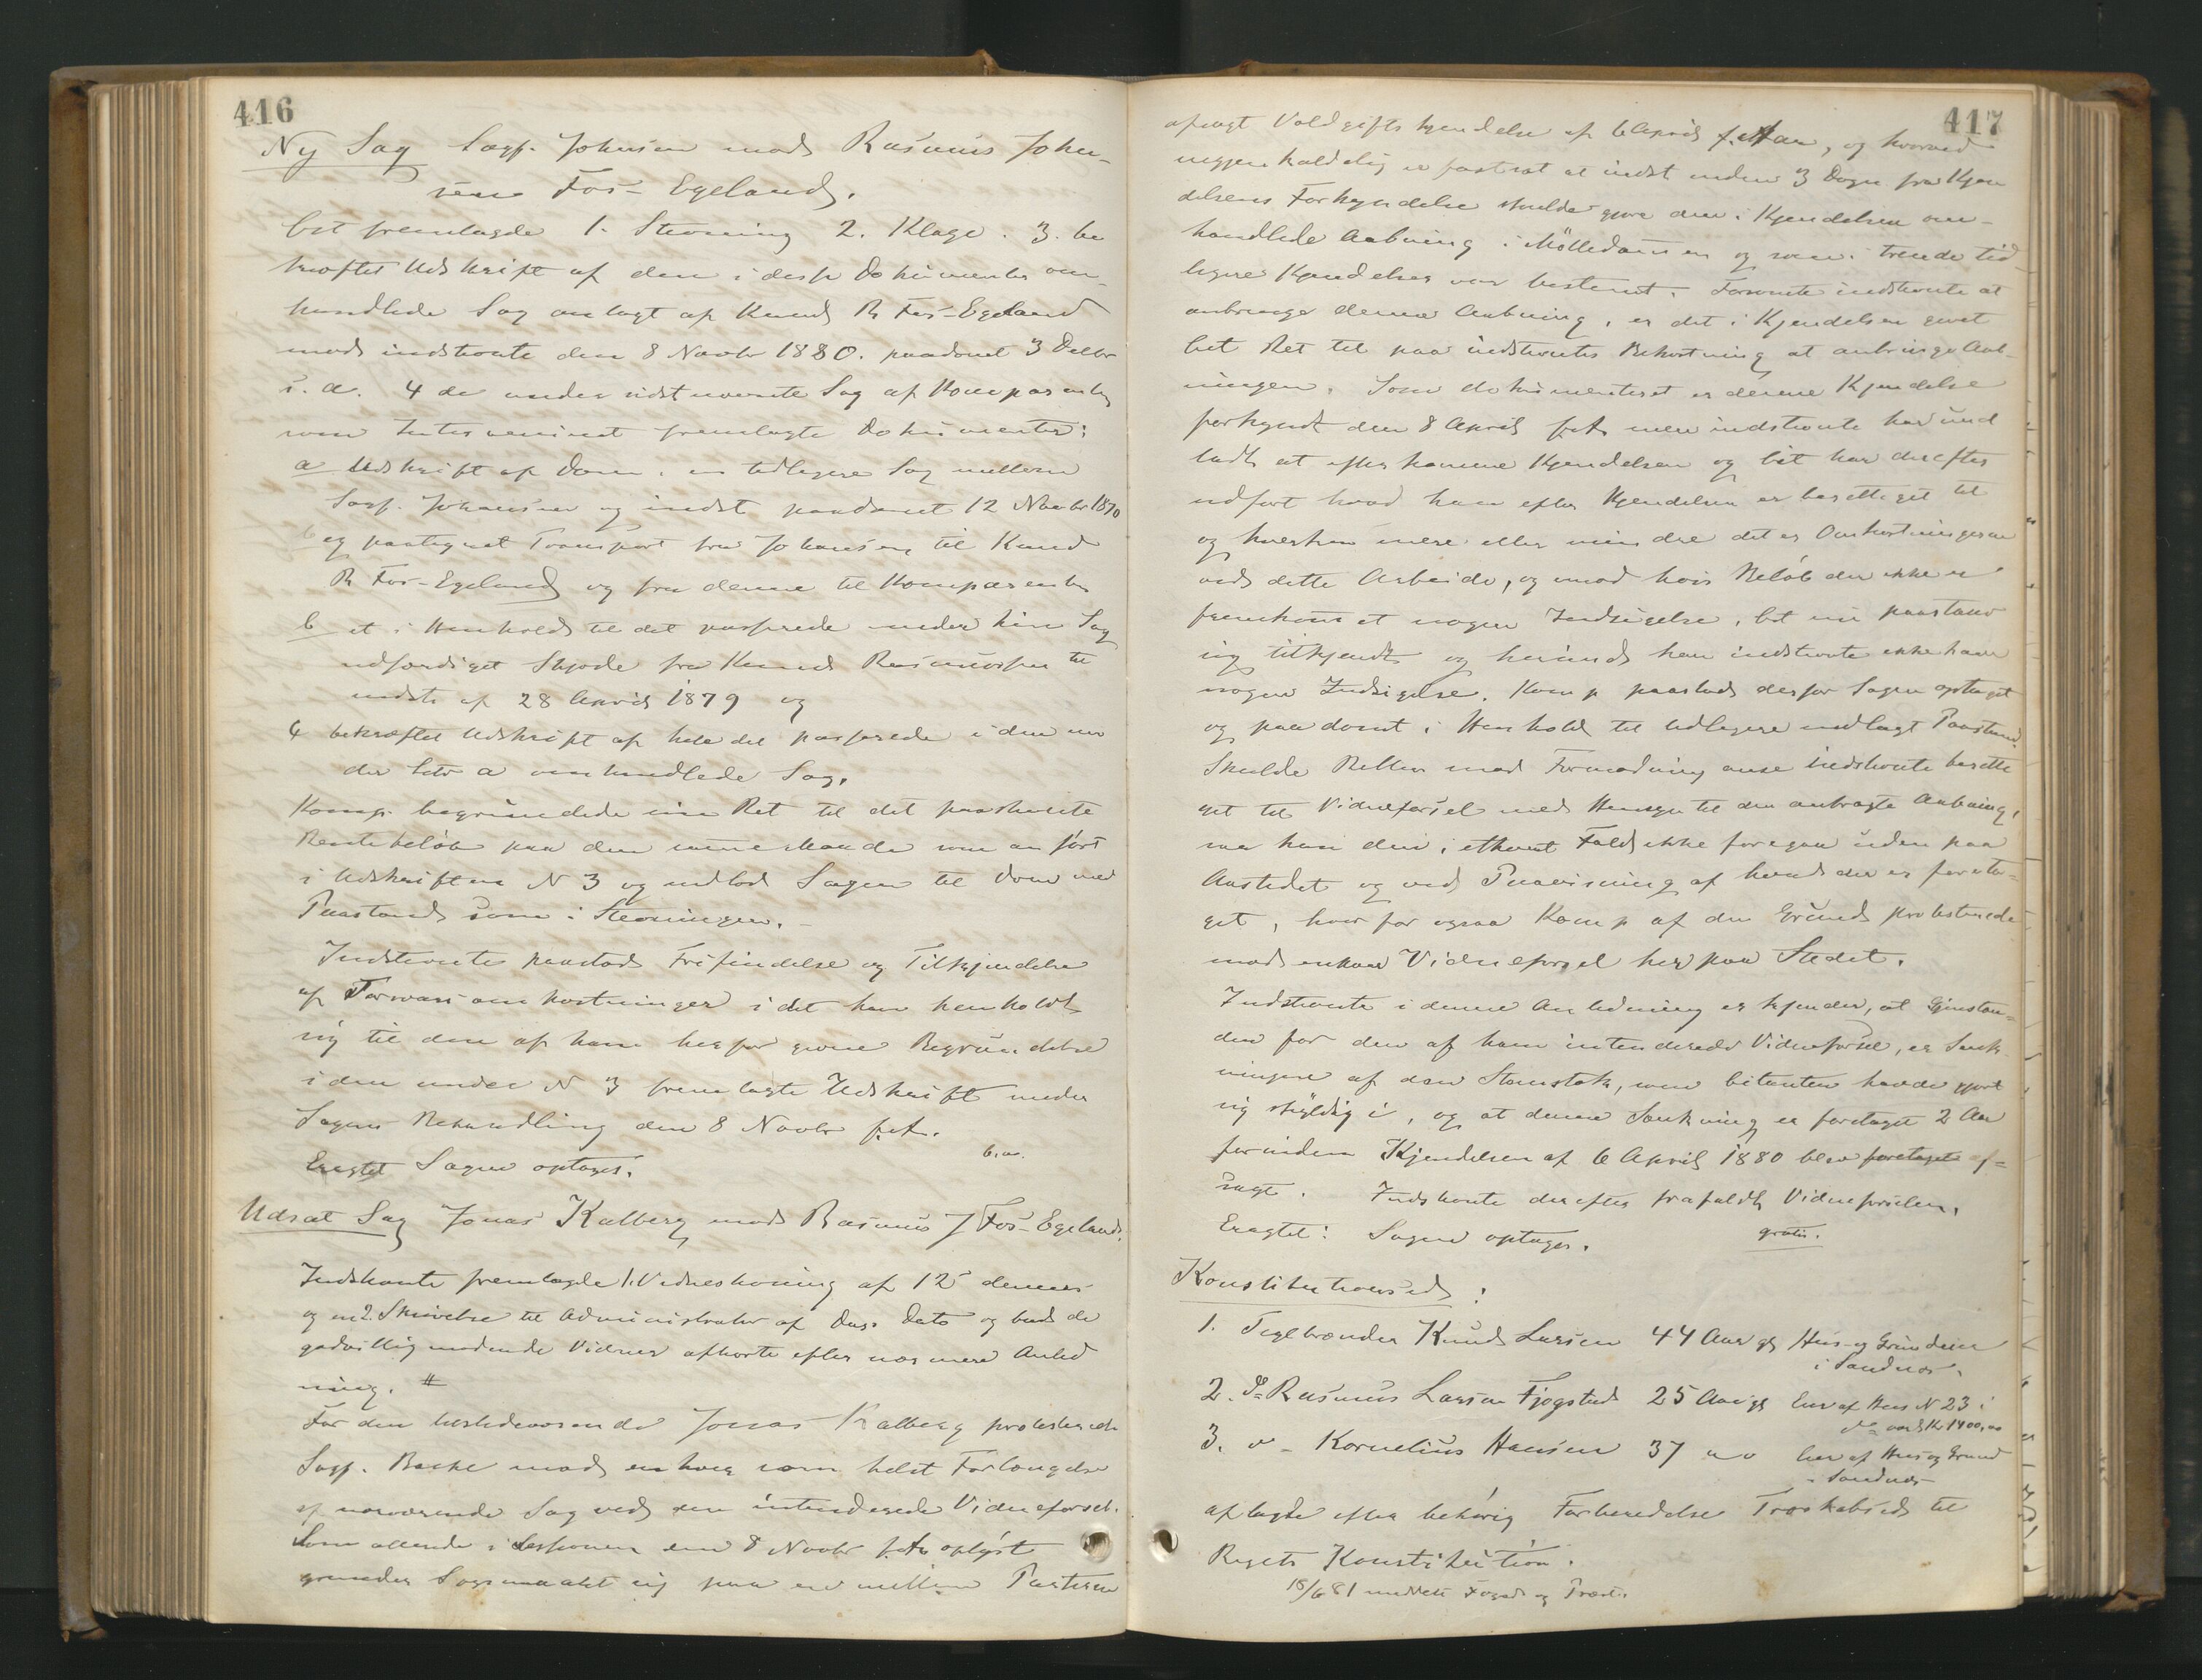 416
Ny Sag Sagf. Johnsen mod Rasmus John-
sen Fos-Egeland.
Cit fremlagde 1. Stevning 2. Klage. 3. be
kræftet Udskrift af den i disse Dokumenter om-
handlede Sag anlagt af Knud R Fos-Egeland
mod indstevnte den 8 Novbr 1880. paadømt 3 Decbr
s. a. 4 de under sidstnævnte Sag af Komparenten
som Intervenient fremlagte Dokumenter:
a Udskrift af Dom i en tidligere Sag mellem
Sagf. Johansen og indst paadømt 12 Novbr 1870
og paategnet Transport fra Johansen til Knud
R Fos-Egeland og fra denne til Komparenten
b et i Henhold til det passerede under hin Sag
udfærdiget Skjøde fra Knud Rasmussen til
indst af 28 April 1879 og
c bekræftet Udskrift af hele det passerede i den un
der Litr a omhandlede Sag.
Komp. begrundede sin Ret til det paastevnte
Rentebeløb paa den samme Maade som anført
i Udskriften N 3 og indlod Sagen til Dom med
Paastand som i Stevningen.
Indstevnte paastod Frifindelse og Tilkjendelse
af Forsvarsomkostninger idet han henholdt
sig til den af ham herfor givne Begrundelse
i den under N 3 fremlagte Udskrift under
Sagens Behandling den 8 Novbr f.A.
Eragtet Sagen optages.
Udsat Sag Jonas Kalberg mod Rasmus J Fos-Egeland.
Indstevnte fremlagde 1. Vidnestevning af 12 dennes
og en 2. Skrivelse til Administrator af Dags Dato og bad de
godvillig mødende Vidner afhørte efter nærmere Anled
ning. #
For den tilstedeværende Jonas Kalberg protesterede
Sagf. Bache mod enhver som helst Forlængelse
af nærværende Sag ved den intenderede Vidneførsel.
Som allerede i Sessionen den 8 Novbr f.A. oplyst
grunder Søgsmaalet sig paa en mellem Parterne
417
afsagt Voldgiftskjendelse af 6 April f. Aar, og hvorved
uigjenkaldelig er fastsat at indst inden 3 Dage fra Kjen
delsens Forkyndelse skulde gjøre den i Kjendelsen om-
handlede Aabning i Mølledammen og som i trende tid-
ligere Kjendelser var bestemt. Forsømte indstevnte at
anbringe denne Aabning, er det i Kjendelsen givet
Cit Ret til paa indstevntes Bekostning at anbringe Aab-
ningen. Som dokumenteret er denne Kjendelse
forkyndt den 8 April f.A. men indstevnte har und
ladt at efterkomme Kjendelsen og Cit har derefter
udført hvad han efter Kjendelsen er berettiget til
og hverken mere eller mindre det er Omkostningerne
ved dette Arbeide, og imod hvis Beløb der ikke er
fremkommet nogen Indsigelse, Cit nu paastaar
sig tilkjendt og herimod kan indstevnte ikke have
nogen Indsigelse. Komp paastod derfor Sagen optaget
og paadømt i Henhold til tidligere nedlagt Paastand.
Skulde Retten mod Formodning anse indstevnte beretti
get til Vidneførsel med Hensyn til den anbragte Aabning,
saa kan den i ethvert Fald ikke foregaa uden paa
Aastedet og ved Paavisning af hvad der er foreta-
get, hvorfor ogsaa Komp af den Grund protesterede
mod enhver Vidneførsel her paa Stedet.
Indstevnte i denne Anledning erkjender, at Gjenstan-
den for den af ham intenderede Vidneførsel, er Sænk-
ningen af den Stemstok, som Citanten havde gjort
sig skyldig i, og at denne Sænkning er foretaget 2 Aar
forinden Kjendelsen af 6 April 1880 blev foretaget af-
sagt. Indstevnte derefter frafaldt Vidneførselen.
Eragtet: Sagen optages. gratis.
Konstitutionsed:
1. Teglbrænder Knud Larsen 44 Aar gl Hus- og Grundeier
i Sandnæs.
2. Do Rasmus Larsen Fjogstad 25 Aar gl Eier af Hus N 23 i
do værd Kr 1400,00
3. do Kornelius Hansen 37 Eier af Hus og Grund
i Sandnæs
aflagde efter behørig Forberedelse Troskabsed til
Rigets Konstitution.
18/6 81 meddelt Foged og Præst.